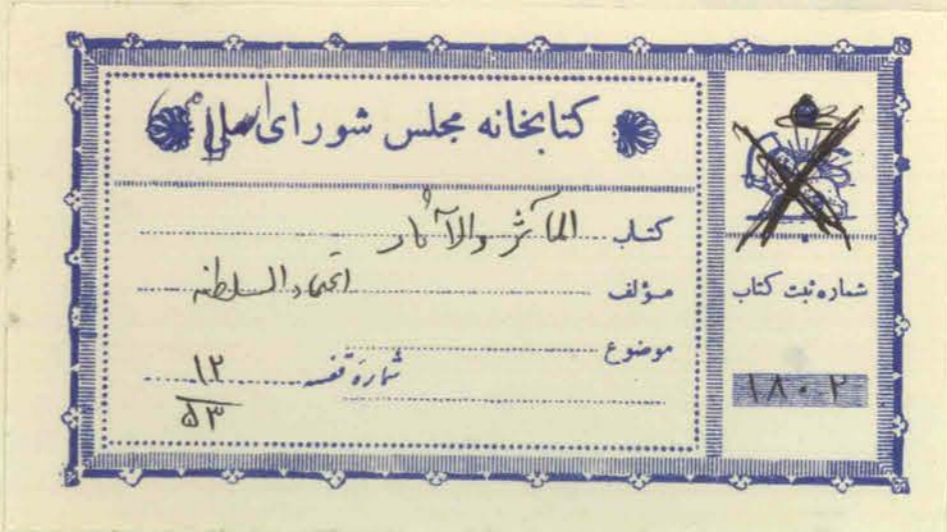 کتابخانه مجلس شورای اسلامی
کتاب المآثر والآثار
مؤلف اعتماد السلطنه
موضوع
شماره قفسه ۱۲
۵۳
شماره ثبت کتاب
۱۸۰۲